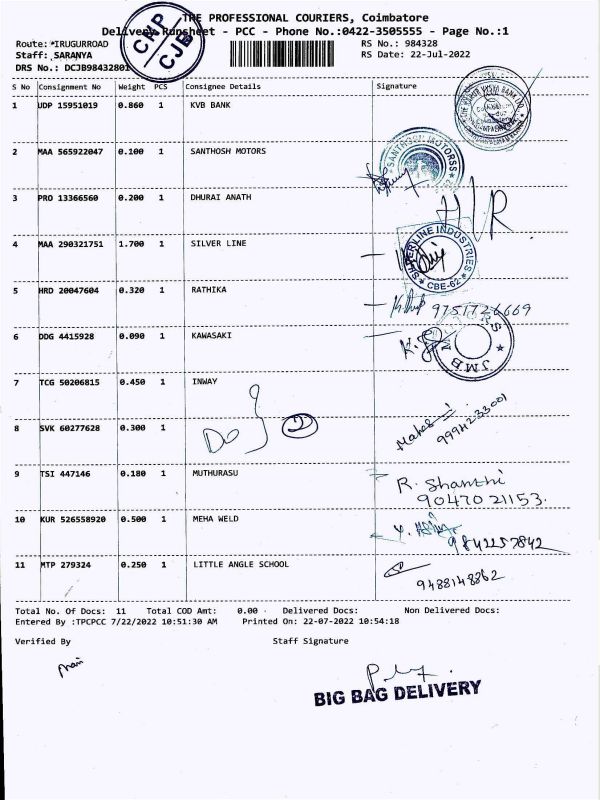 THE PROFESSIONAL COURIERS, Coimbatore
Delivery Runsheet - PCC - Phone No.:0422-3505555 - Page No.:1
CMP
CJB
Route: *IRUGURROAD
RS No.: 984328
Staff: SARANYA
RS Date: 22-Jul-2022
DRS No.: DCJB98432801
S No Consignment No Weight PCS Consignee Details Signature
1 UDP 15951019 0.860 1 KVB BANK
2 MAA 565922047 0.100 1 SANTHOSH MOTORS
SANTHOSH MOTORSS
3 PRO 13366560 0.200 1 DHURAI ANATH
4 MAA 290321751 1.700 1 SILVER LINE
INDUSTRIES
CBE-62
5 HRD 20047604 0.320 1 RATHIKA
9751726669
6 DDG 4415928 0.090 1 KAWASAKI
JMB
7 TCG 50206815 0.450 1 INWAY
8 SVK 60277628 0.300 1
Do
9994233001
9 TSI 447146 0.180 1 MUTHURASU
R. Shanthi
9047021153.
10 KUR 526558920 0.500 1 MEHA WELD
9842257842
11 MTP 279324 0.250 1 LITTLE ANGLE SCHOOL
9488148862
Total No. Of Docs: 11 Total COD Amt: 0.00 Delivered Docs: Non Delivered Docs:
Entered By :TPCPCC 7/22/2022 10:51:30 AM Printed On: 22-07-2022 10:54:18
Verified By Staff Signature
BIG BAG DELIVERY